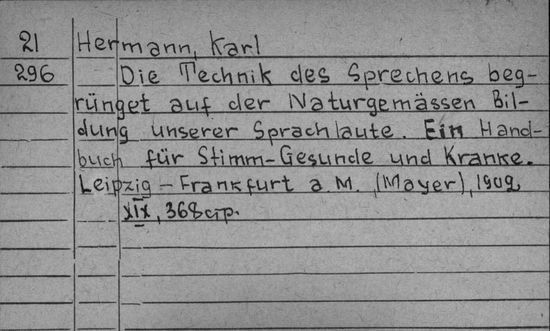 21 Hermann, Karl
296 Die Technik des Sprechens beg-
rünget auf der Naturgemässen Bil-
dung unserer Sprachlaute. Ein Hand-
buch für Stimm-Gesunde und Kranke.
Leipzig - Frankfurt a. M. (Mayer), 1902
XIX, 368 стр.